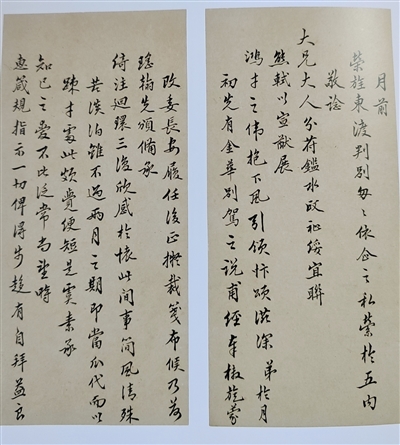 月前
榮旌東渡判別匆匆依念之私縈於五內
敬諗
大兄大人分符鑑水政祉綏宜聯
熊軾以宣猷展
鴻才之偉抱下風引領忭頌滋深弟於月
初先有金華別駕之說甫經奉檄旋蒙
改委長安履任後正擬裁箋布候乃荷
瑤翰先頒備承
綺注迴環三復欣感於懷此間事簡風清殊
甚淡泊雖不過兩月之期即當瓜代而以
踈才處此頗覺綆短是虞素承
知己之愛不比泛常尚望時
惠箴規指示一切俾得步趨有自拜益良